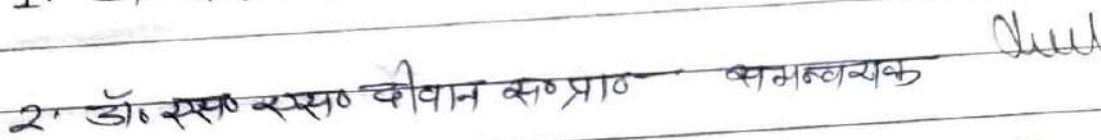 2. डॉ० एस० एस० दीवान स० प्रा० समन्वयक